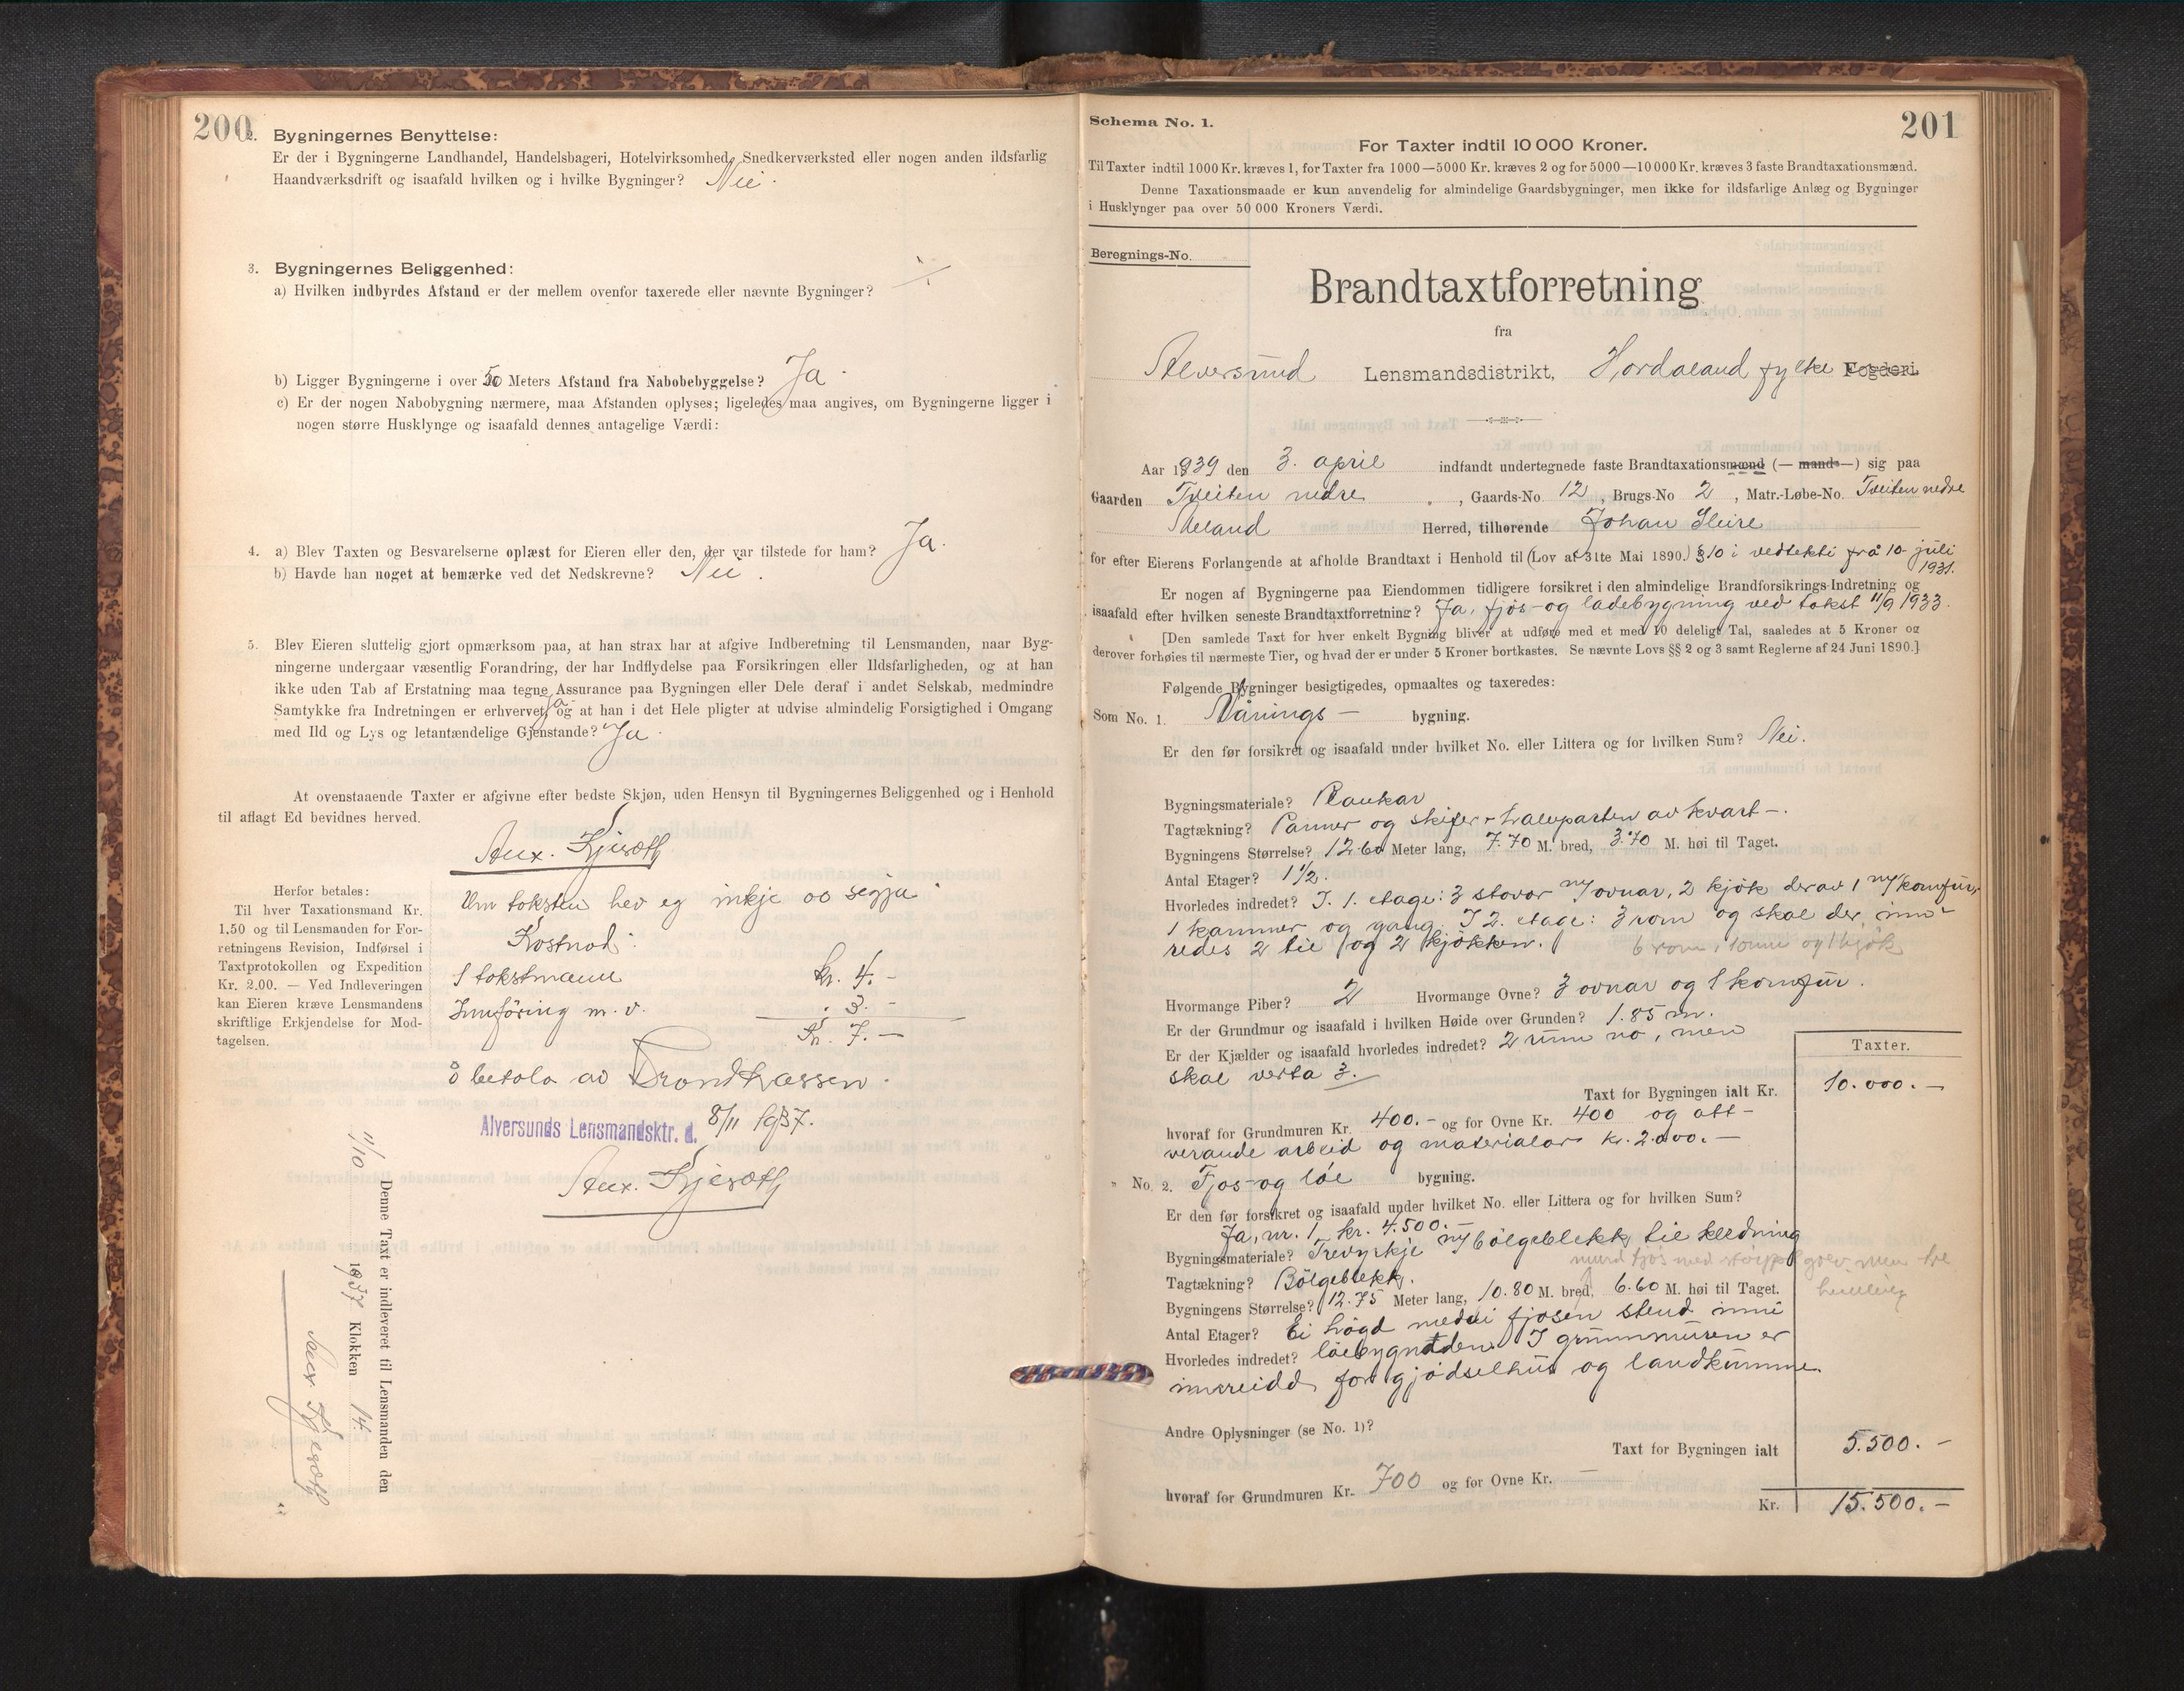 200
2. Bygningernes Benyttelse:
Er der i Bygningerne Landhandel, Handelsbageri, Hotelvirksomhed, Snedkerværksted eller nogen anden ildsfarlig
Haandværksdrift og isaafald hvilken og i hvilke Bygninger? Nei.
3. Bygningernes Beliggenhed:
a) Hvilken indbyrdes Afstand er der mellem ovenfor taxerede eller nævnte Bygninger?
b) Ligger Bygningerne i over 50 Meters Afstand fra Nabobebyggelse? Ja.
c) Er der nogen Nabobygning nærmere, maa Afstanden oplyses; ligeledes maa angives, om Bygningerne ligger i
nogen større Husklynge og isaafald dennes antagelige Værdi:
4. a) Blev Taxten og Besvarelserne oplæst for Eieren eller den, der var tilstede for ham? Ja.
b) Havde han noget at bemærke ved det Nedskrevne? Nei.
5. Blev Eieren sluttelig gjort opmærksom paa, at han strax har at afgive Indberetning til Lensmanden, naar Byg-
ningerne undergaar væsentlig Forandring, der har Indflydelse paa Forsikringen eller Ildsfarligheden, og at han
ikke uden Tab af Erstatning maa tegne Assurance paa Bygningen eller Dele deraf i andet Selskab, medmindre
Samtykke fra Indretningen er erhvervet, Ja og at han i det Hele pligter at udvise almindelig Forsigtighed i Omgang
med Ild og Lys og letantændelige Gjenstande? Ja.
At ovenstaaende Taxter er afgivne efter bedste Skjøn, uden Hensyn til Bygningernes Beliggenhed og i Henhold
til aflagt Ed bevidnes herved.
Um toksten hev eg inkje oo segja.
Kostnad:
1 tokstmann kr. 4.-
Innføring m. v. " 3.-
Kr. 7.-
å betala av Brandkassen.
Alversunds Lensmandsktr. d. 8/11 1937.
Herfor betales:
Til hver Taxationsmand Kr.
1,50 og til Lensmanden for For-
retningens Revision, Indførsel i
Taxtprotokollen og Expedition
Kr. 2.00. — Ved Indleveringen
kan Eieren kræve Lensmandens
skriftlige Erkjendelse for Mod-
tagelsen.
Denne Taxt er indleveret til Lensmanden den
11/10 1937 Klokken 14
201
Schema No. 1.
For Taxter indtil 10 000 Kroner.
Til Taxter indtil 1000 Kr. kræves 1, for Taxter fra 1000—5000 Kr. kræves 2 og for 5000—10 000 Kr. kræves 3 faste Brandtaxationsmænd.
Denne Taxationsmaade er kun anvendelig for almindelige Gaardsbygninger, men ikke for ildsfarlige Anlæg og Bygninger
i Husklynger paa over 50 000 Kroners Værdi.
Beregnings-No.
Brandtaxtforretning
fra
Alversund Lensmandsdistrikt, Hordaland fylke Fogderi.
Aar 1939 den 3. april indfandt undertegnede faste Brandtaxationsmænd (— mand —) sig paa
Gaarden Tveiten nedre, Gaards-No. 12, Brugs-No 2, Matr.-Løbe-No. Tveiten nedre
Meland Herred, tilhørende Johan Fleire
for efter Eierens Forlangende at afholde Brandtaxt i Henhold til (Lov af 31te Mai 1890.) § 10 i vedtekti frå 10. juli
1931.
Er nogen af Bygningerne paa Eiendommen tidligere forsikret i den almindelige Brandforsikrings-Indretning og
isaafald efter hvilken seneste Brandtaxtforretning? Ja, fjøs- og ladebygning ved takst 11/9 1933.
[Den samlede Taxt for hver enkelt Bygning bliver at udføre med et med 10 deleligt Tal, saaledes at 5 Kroner og
derover forhøies til nærmeste Tier, og hvad der er under 5 Kroner bortkastes. Se nævnte Lovs §§ 2 og 3 samt Reglerne af 24 Juni 1890.]
Følgende Bygninger besigtigedes, opmaaltes og taxeredes:
Som No. 1. Vånings- bygning.
Er den før forsikret og isaafald under hvilket No. eller Littera og for hvilken Sum? Nei.
Bygningsmateriale? Plankar
Tagtækning? Panner og skifer + halvparten av kvart-.
Bygningens Størrelse? 12.60 Meter lang, 7.70 M. bred, 3.70 M. høi til Taget.
Antal Etager? 1½.
Hvorledes indret? I 1. etage: 3 stovor m/ovnar, 2 kjøk derav 1 m/komfur,
1 kammer og gang. I 2. etage: 3 rom og skal der inn-
redes 2 til og 2 kjøkken.
Hvormange Piber? 2 Hvormange Ovne? 3 ovnar og 1 komfur.
Er der Grundmur og isaafald i hvilken Høide over Grunden? 1.85 m.
Er der Kjælder og isaafald hvorledes indredet? 2 rum no, men
skal verta 3.
Taxter.
Taxt for Bygningen ialt Kr. 10.000.-
hvoraf for Grundmuren Kr. 400.- og for Ovne Kr. 400 og att-
verande arbeid og materialar kr. 2.000.-
" No. 2. Fjos- og løe bygning.
Er den før forsikret og isaafald under hvilket No. eller Littera og for hvilken Sum?
Ja, nr. 1, kr. 4.500.-
Bygningsmateriale? Trevyrkje m/bølgeblekk til kledning
Tagtækning? Bølgeblekk.
Bygningens Størrelse? 12.75 Meter lang, 10.80 M. bred, 6.60 M. høi til Taget.
Antal Etager? Ei høgd medi fjosen stend inni
Hvorledes indredet? løebygnaden. I grunnmuren er
innreidd for gjødselhus og landkumme.
Andre Oplysninger (se No. 1)?
Taxt for Bygningen ialt 5.500.-
hvoraf for Grundmuren Kr. 700 og for Ovne Kr. —
Kr. 15.500.-